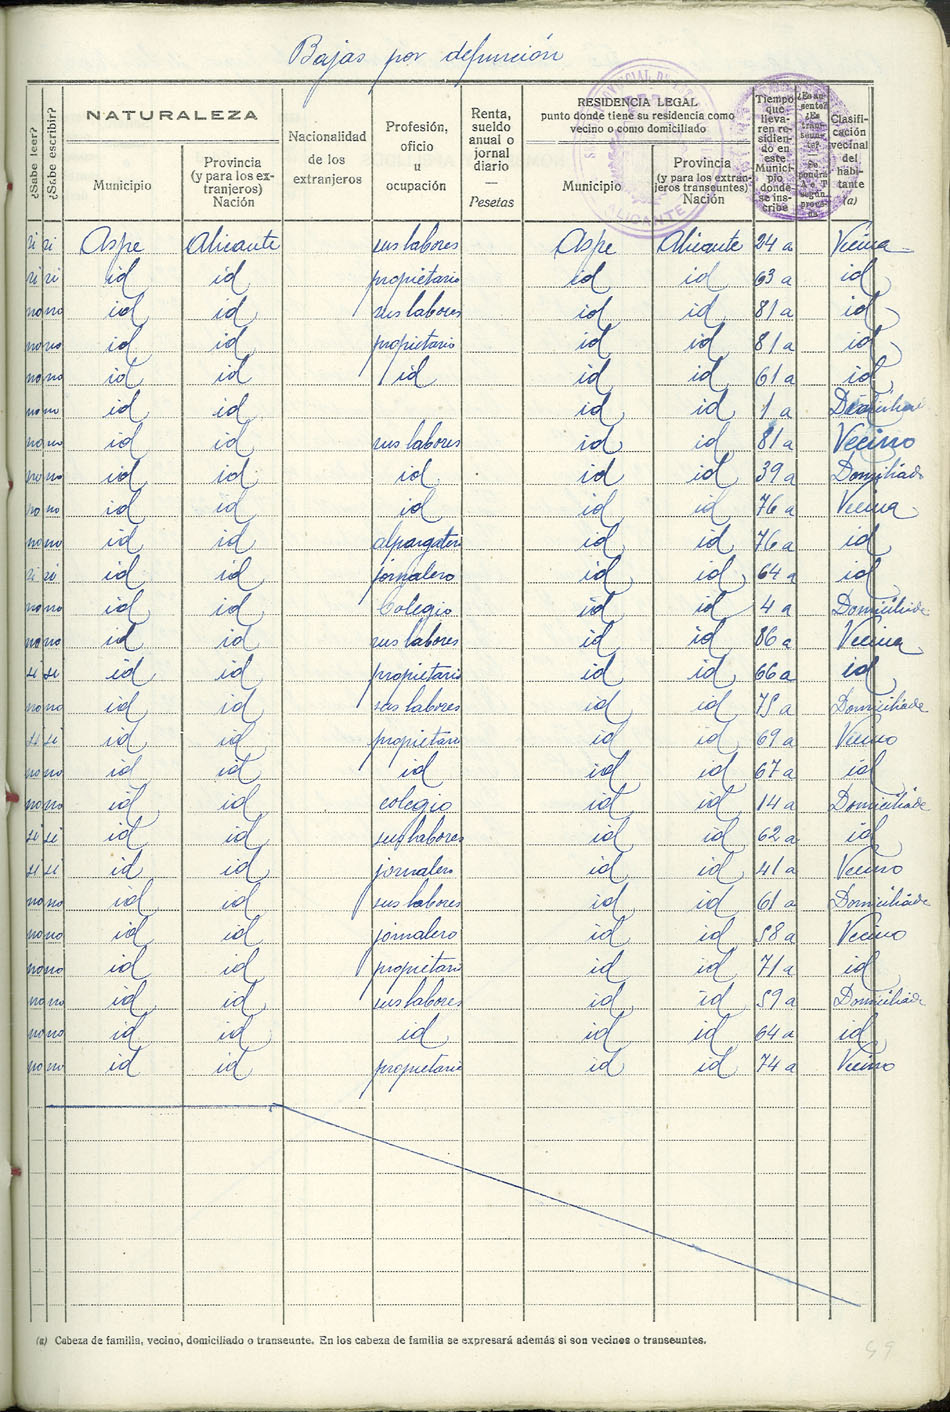 Bajas por defunción
¿Sabe leer?
¿Sabe escribir?
NATURALEZA
Municipio
Provincia
(y para los ex-
tranjeros)
Nación
Nacionalidad
de los
extranjeros
Profesión,
oficio
u
ocupación
Renta,
sueldo
anual o
jornal
diario
—
Pesetas
RESIDENCIA LEGAL
punto donde tiene su residencia como
vecino o como domiciliado
Municipio
Provincia
(y para los extran-
jeros transeuntes)
Nación
Tiempo
que
lleva-
ren re-
sidien-
do en
este
Munici-
pio
donde
se ins-
cribe
Clasifi-
cación
vecinal
del
habi-
tante
(a)
ALICANTE
si si Aspe Alicante sus labores Aspe Alicante 24 a Vecina
si si id id propietario id id 63 a id
no no id id sus labores id id 81 a id
no no id id propietario id id 81 a id
no no id id id id id 61 a id
no no id id id id 1 a
no no id id sus labores id id 81 a Vecino
no no id id id id id 39 a Domiciliado
no no id id id id id 76 a Vecina
no no id id alpargatero id id 76 a id
si si id id jornalero id id 64 a id
no no id id Colegio id id 4 a Domiciliado
no no id id sus labores id id 86 a Vecina
si si id id propietario id id 66 a id
no no id id sus labores id id 75 a Domiciliado
si si id id propietario id id 69 a Vecino
no no id id id id id 67 a id
no no id id colegio id id 14 a Domiciliado
si si id id sus labores id id 62 a id
si si id id jornalero id id 41 a Vecino
no no id id sus labores id id 61 a Domiciliado
no no id id jornalero id id 58 a Vecino
no no id id propietario id id 71 a id
no no id id sus labores id id 59 a Domiciliado
no no id id id id id 64 a id
no no id id propietario id id 74 a Vecino
(a) Cabeza de familia, vecino, domiciliado o transeunte. En los cabeza de familia se expresará además si son vecinos o transeuntes.